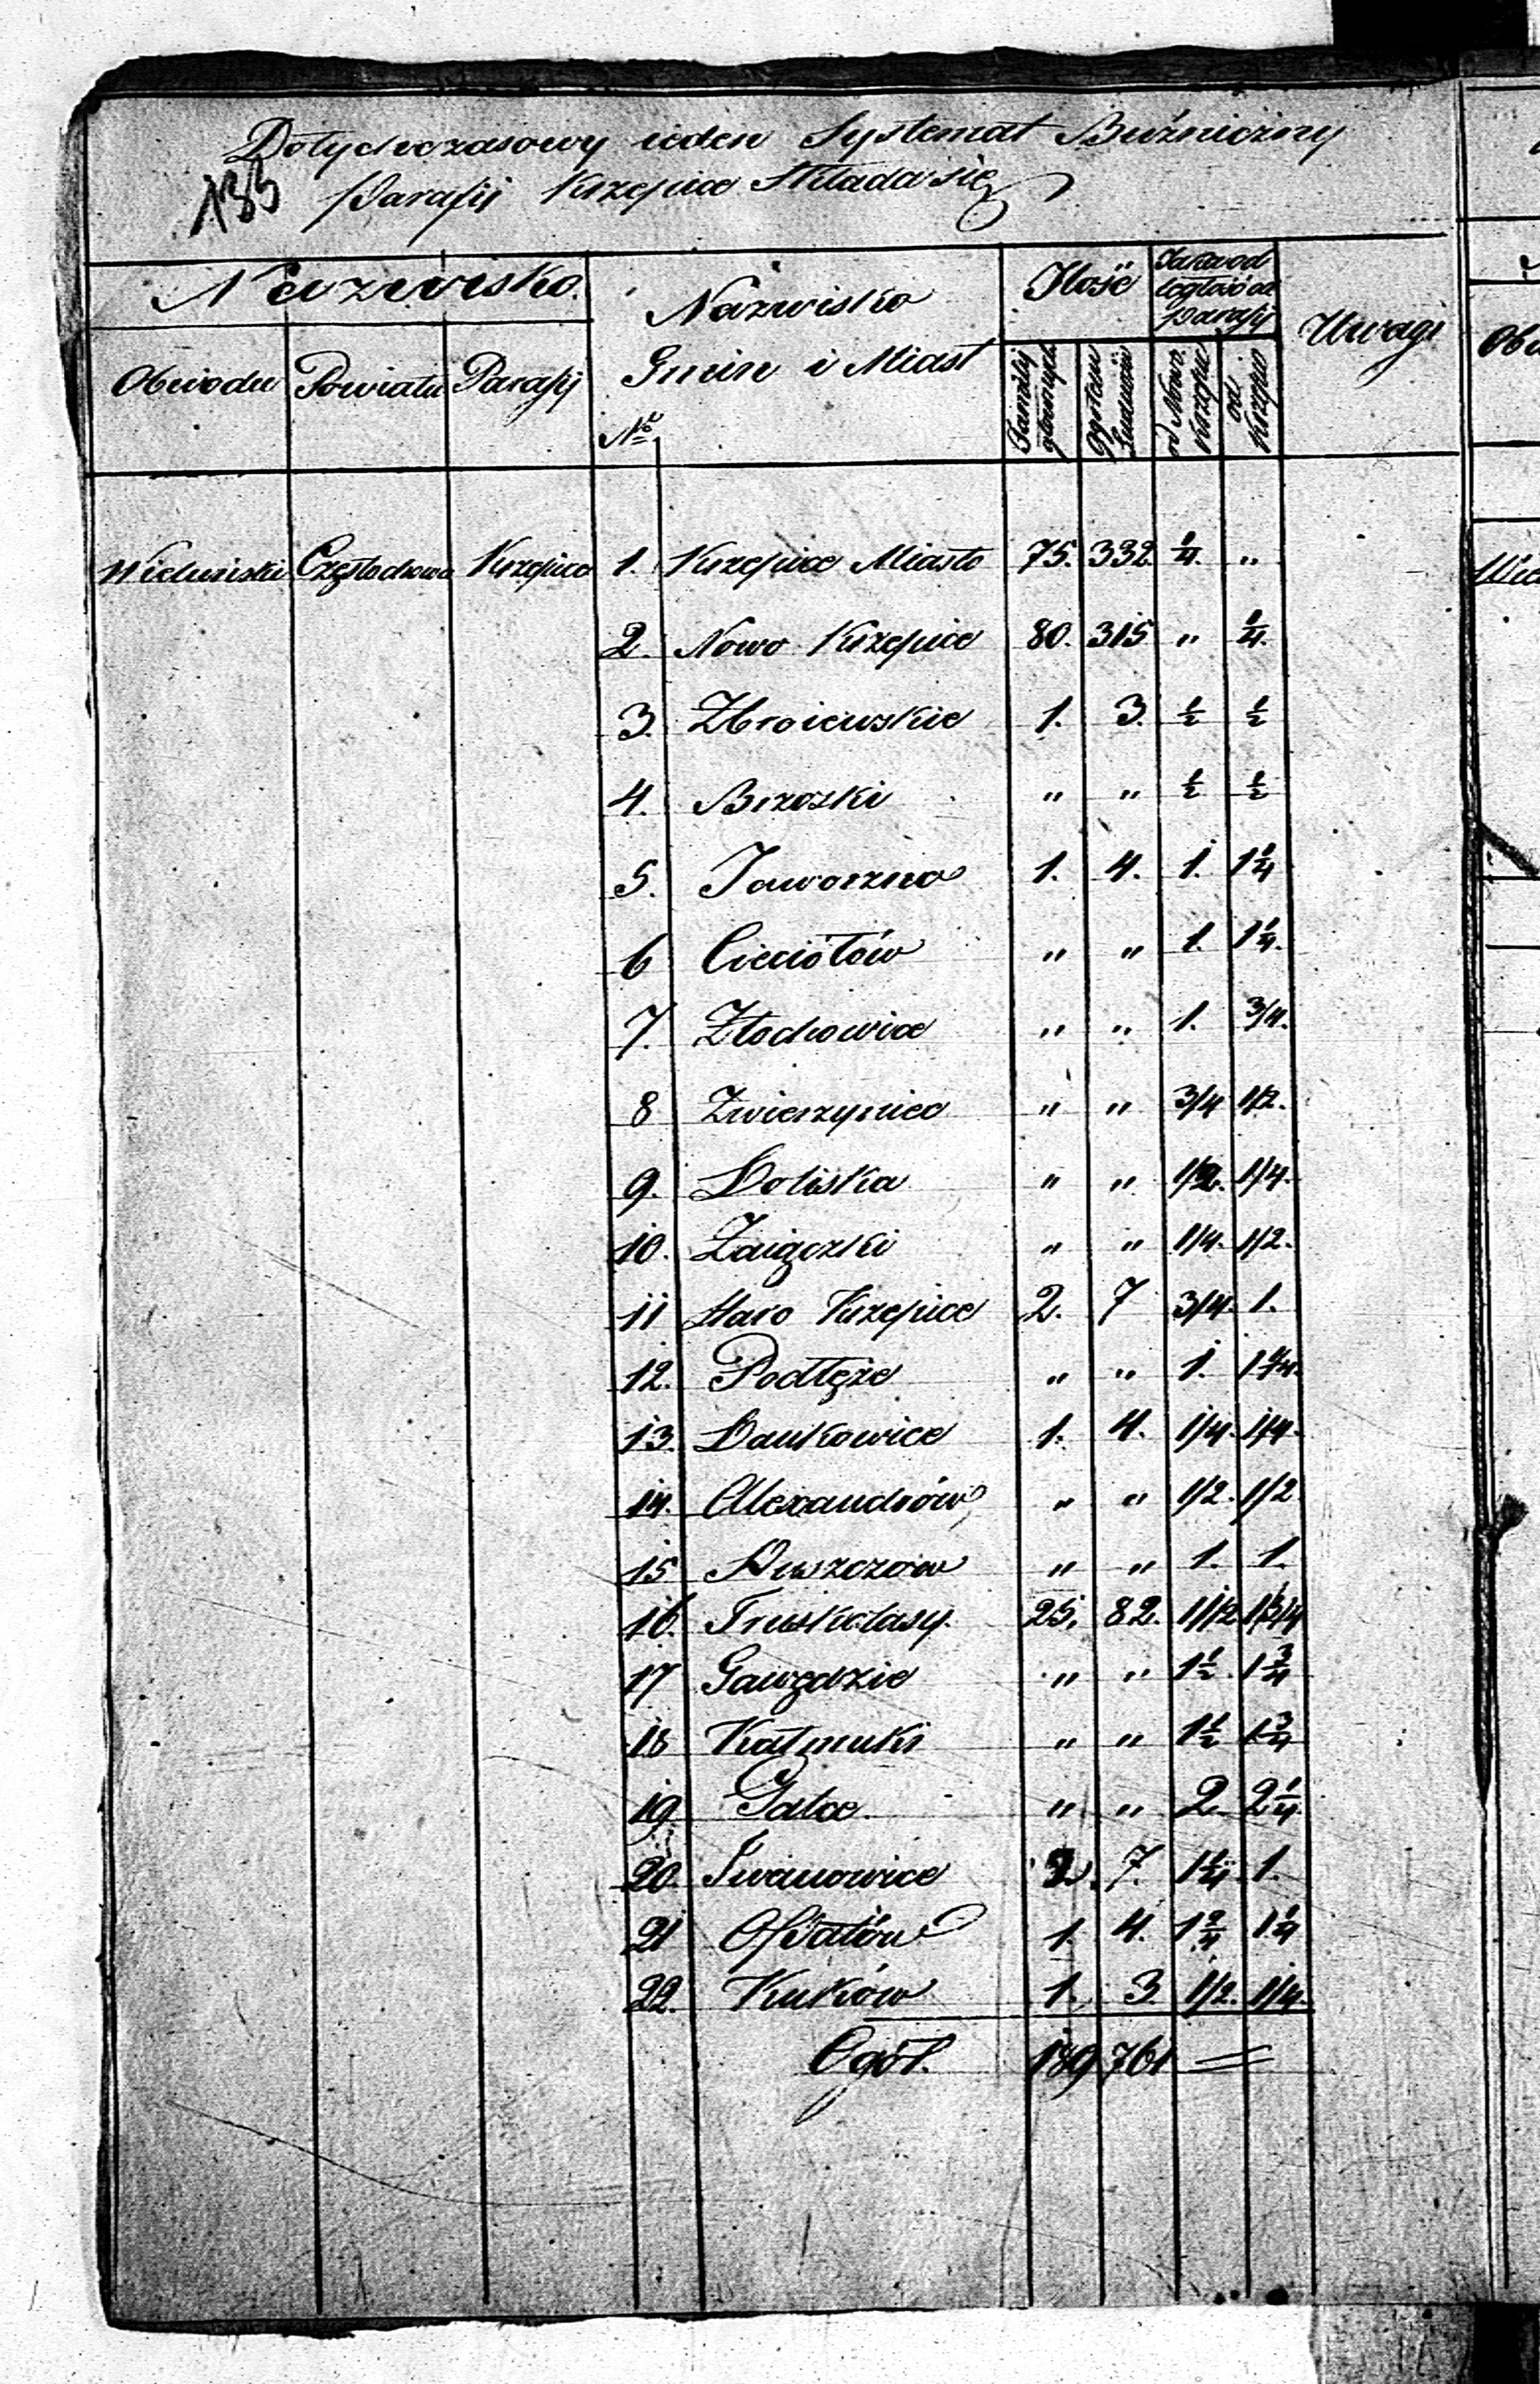 Dotychczasowy ieden Systemat Bużniczny
133 Parafii Krzepice Składa się
Nazwisko. Nazwisko Gmin i Miast Ilość Jaka odległość od Parafii Uwagi
Obwodu Powiatu Parafii No Familij głównych Ogółem Ludności od Nowo Krzepic od Krzepic
Wieluński Częstochowa Krzepice 1. Krzepice Miasto 75. 332. 1/4. "
2. Nowo Krzepice 80. 315 " 1/4.
3. Zbroiewskie 1. 3. 1/2 1/2
4. Brzozki " " 1/2 1/2
5. Jaworzno 1. 4. 1. 1 1/4
6 Cieciółów " " 1. 1 1/4.
7. Złochowice " " 1. 3/4.
8 Zwierzyniec " " 3/4 1/2.
9. Boliska " " 1/2. 1/4.
10. Zaigczki " " 1/4. 1/2.
11 Staro Krzepice 2. 7 3/4. 1.
12. Podłęże " " 1. 1 1/4.
13. Dankowice 1. 4. 1/4. 1/4.
14. Alexandrów " " 1/2. 1/2
15 Kuszczów " " 1. 1.
16. Truskolasy. 25. 82. 1 1/2 1 3/4
17 Gawędzie " " 1 1/2. 1 3/4
18 Kałmuki " " 1 1/2 1 3/4
19 Palce. " " 2. 2 1/4.
20. Iwanowice 2. 7. 1 1/4. 1.
21 Opatów 1. 4. 1 2/4 1 1/4
22. Kuków 1. 3. 1/2. 1/4.
Ogół. 189 761
Obw
Wie